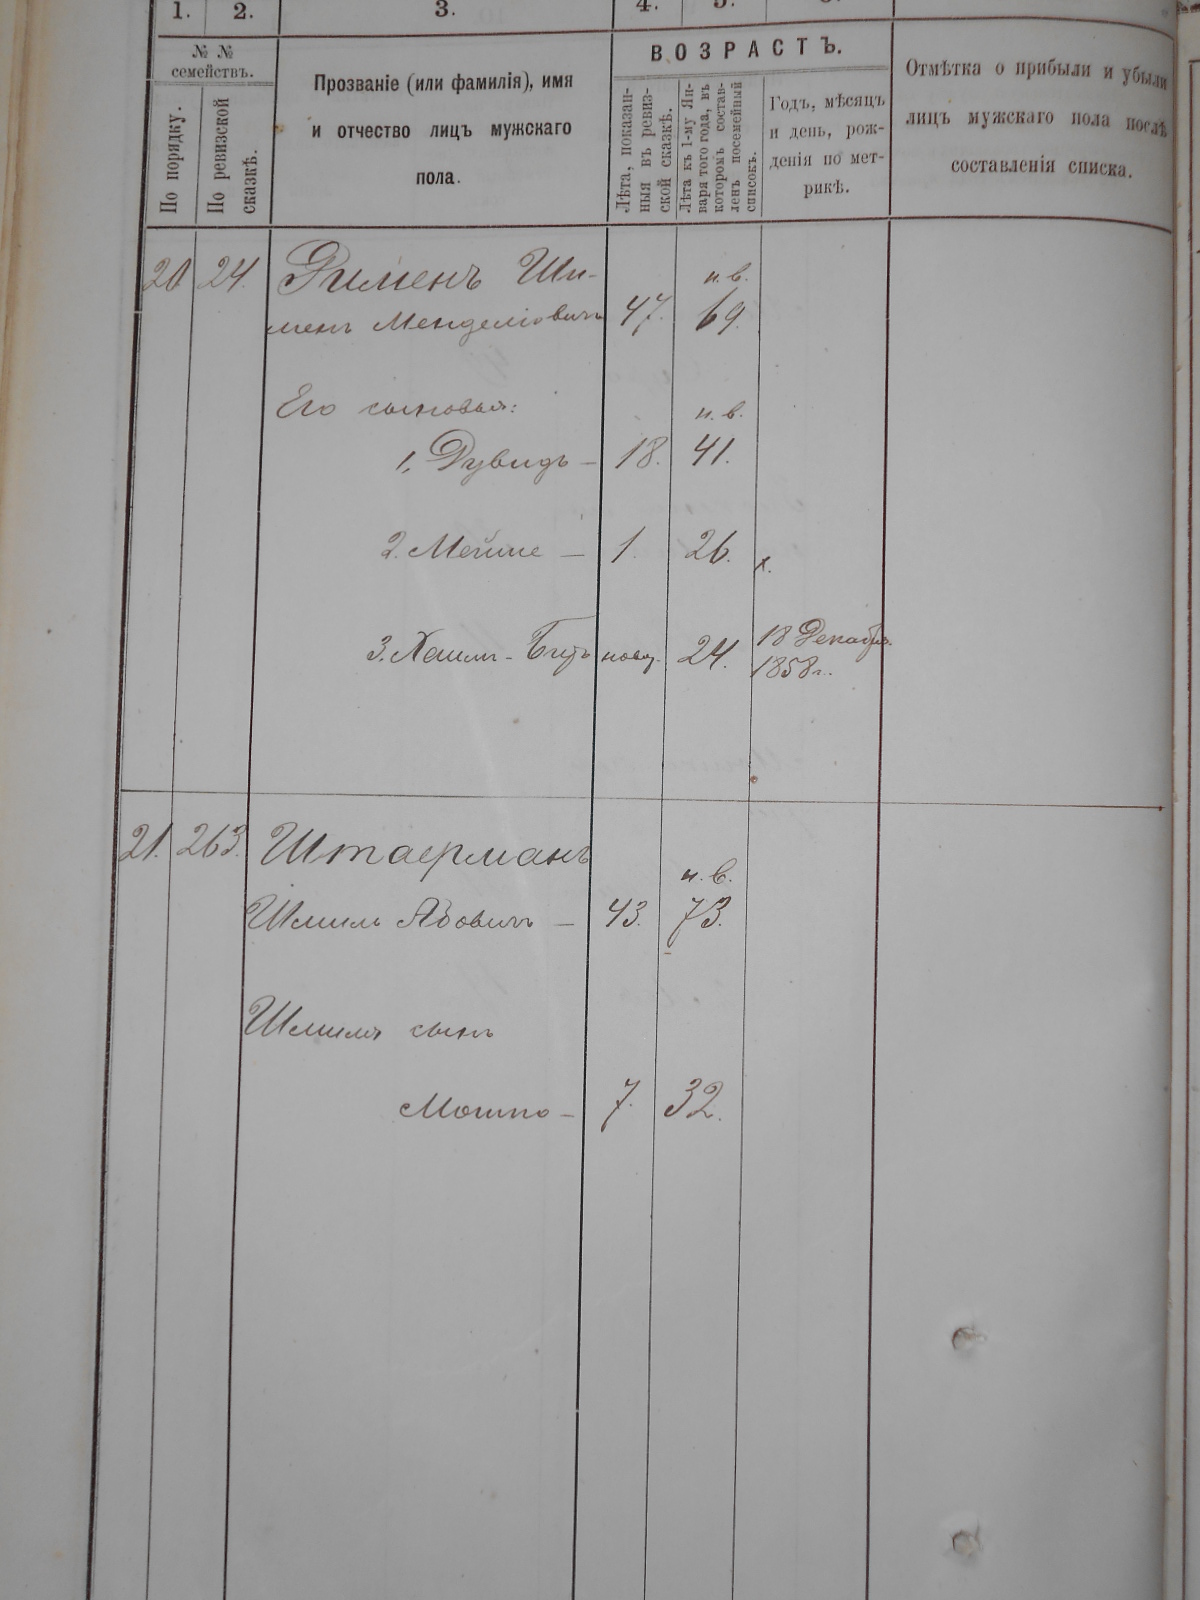 1. 2. 3. 4. 5.
№ №
семействъ.
По порядку.
По ревизской
сказкѣ.
Прозваніе (или фамилія), имя
и отчество лицъ мужскаго
пола.
ВОЗРАСТЪ.
Лѣта, показан-
ныя въ ревиз-
ской сказкѣ.
Лѣта къ 1-му Ян-
варя того года, въ
которомъ состав-
ленъ посемейный
списокъ.
Годъ, мѣсяцъ
и день, рож-
денія по мет-
рикѣ.
Отмѣтка о прибыли и убыли
лицъ мужскаго пола послѣ
составленія списка.
20 24. Рименъ Ши- н.в.
менъ Менделіовичъ 47. 69.
Его сыновья: н.в.
1. Дувидъ — 18. 41.
2. Мейше — 1. 26. х.
3. Хаимъ- 24. 18 Декабря
1858 г.
21. 263. Штаерманъ н.в.
Шмиль Абовичъ — 43. 73.
Шмиля сынъ
Мошко — 7. 32.